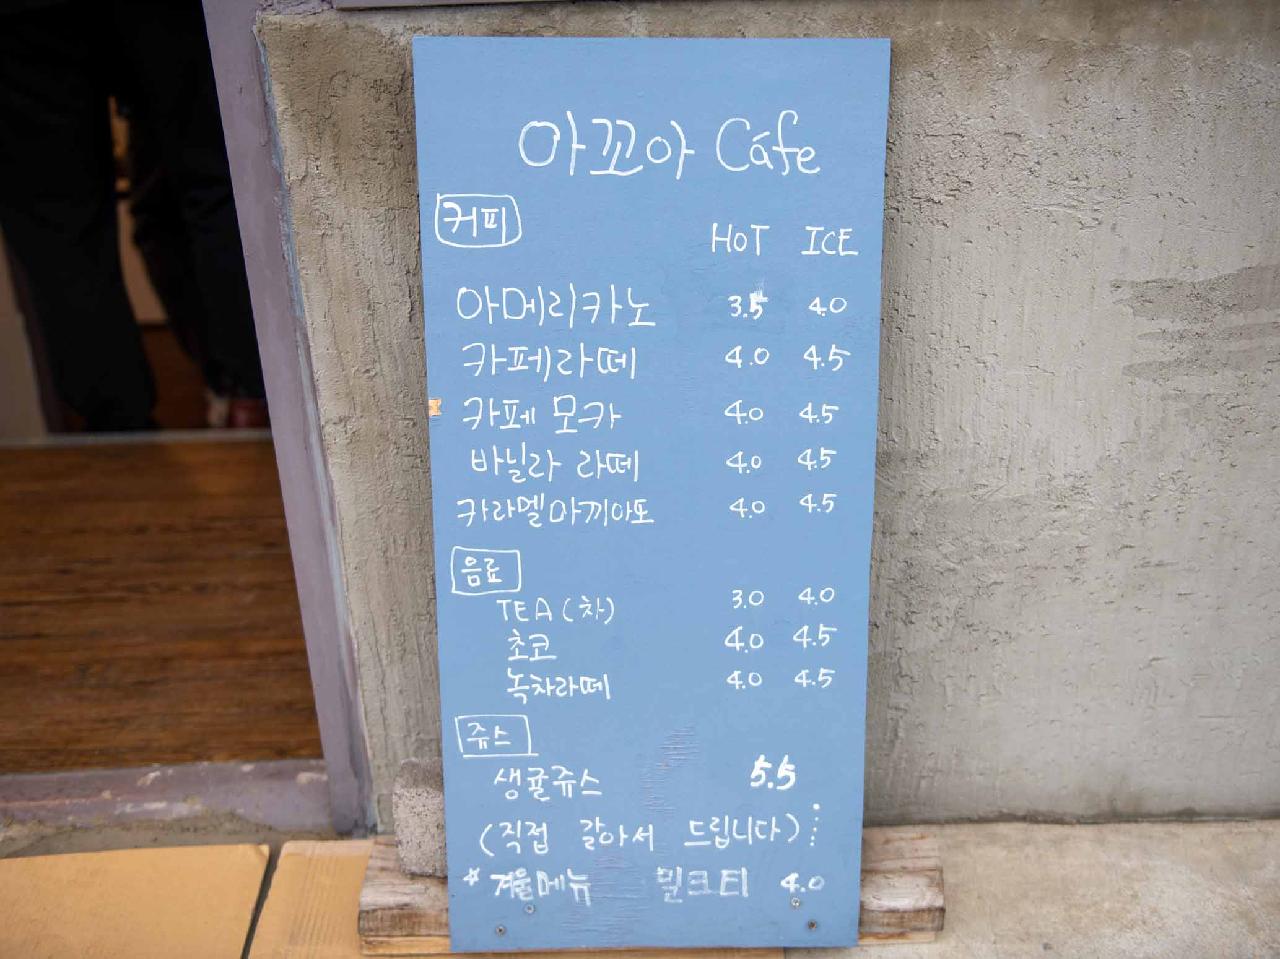 아꼬아 Cáfe
커피
HOT ICE
아메리카노 3.5 4.0
카페라떼 4.0 4.5
카페 모카 4.0 4.5
바닐라 라떼 4.0 4.5
카라멜마끼아또 4.0 4.5
음료
TEA (차) 3.0 4.0
초코 4.0 4.5
녹차라떼 4.0 4.5
쥬스
생귤쥬스 5.5
(직접 갈아서 드립니다)
* 겨울메뉴 밀크티 4.0